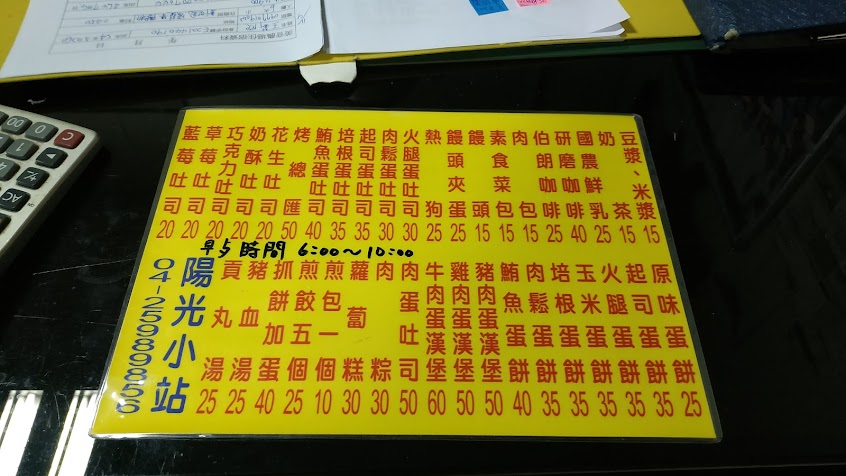 豆漿、米漿 15
奶茶 15
國農鮮乳 25
研磨咖啡 40
伯朗咖啡 25
肉包 15
素食菜包 15
饅頭 15
饅頭夾蛋 25
熱狗 25
火腿蛋吐司 30
肉鬆蛋吐司 30
起司蛋吐司 35
培根蛋吐司 35
鮪魚蛋吐司 40
烤總匯 50
花生吐司 20
奶酥吐司 20
巧克力吐司 20
草莓吐司 20
藍莓吐司 20
早点時間 6:00~10:00
原味蛋餅 25
起司蛋餅 35
火腿蛋餅 35
玉米蛋餅 35
培根蛋餅 35
肉鬆蛋餅 35
鮪魚蛋餅 40
豬肉蛋漢堡 50
雞肉蛋漢堡 50
牛肉蛋漢堡 60
肉蛋吐司 50
肉粽 30
蘿蔔糕 30
煎包一個 10
煎餃五個 25
抓餅加蛋 40
豬血湯 25
貢丸湯 25
陽光小站
04-25989856